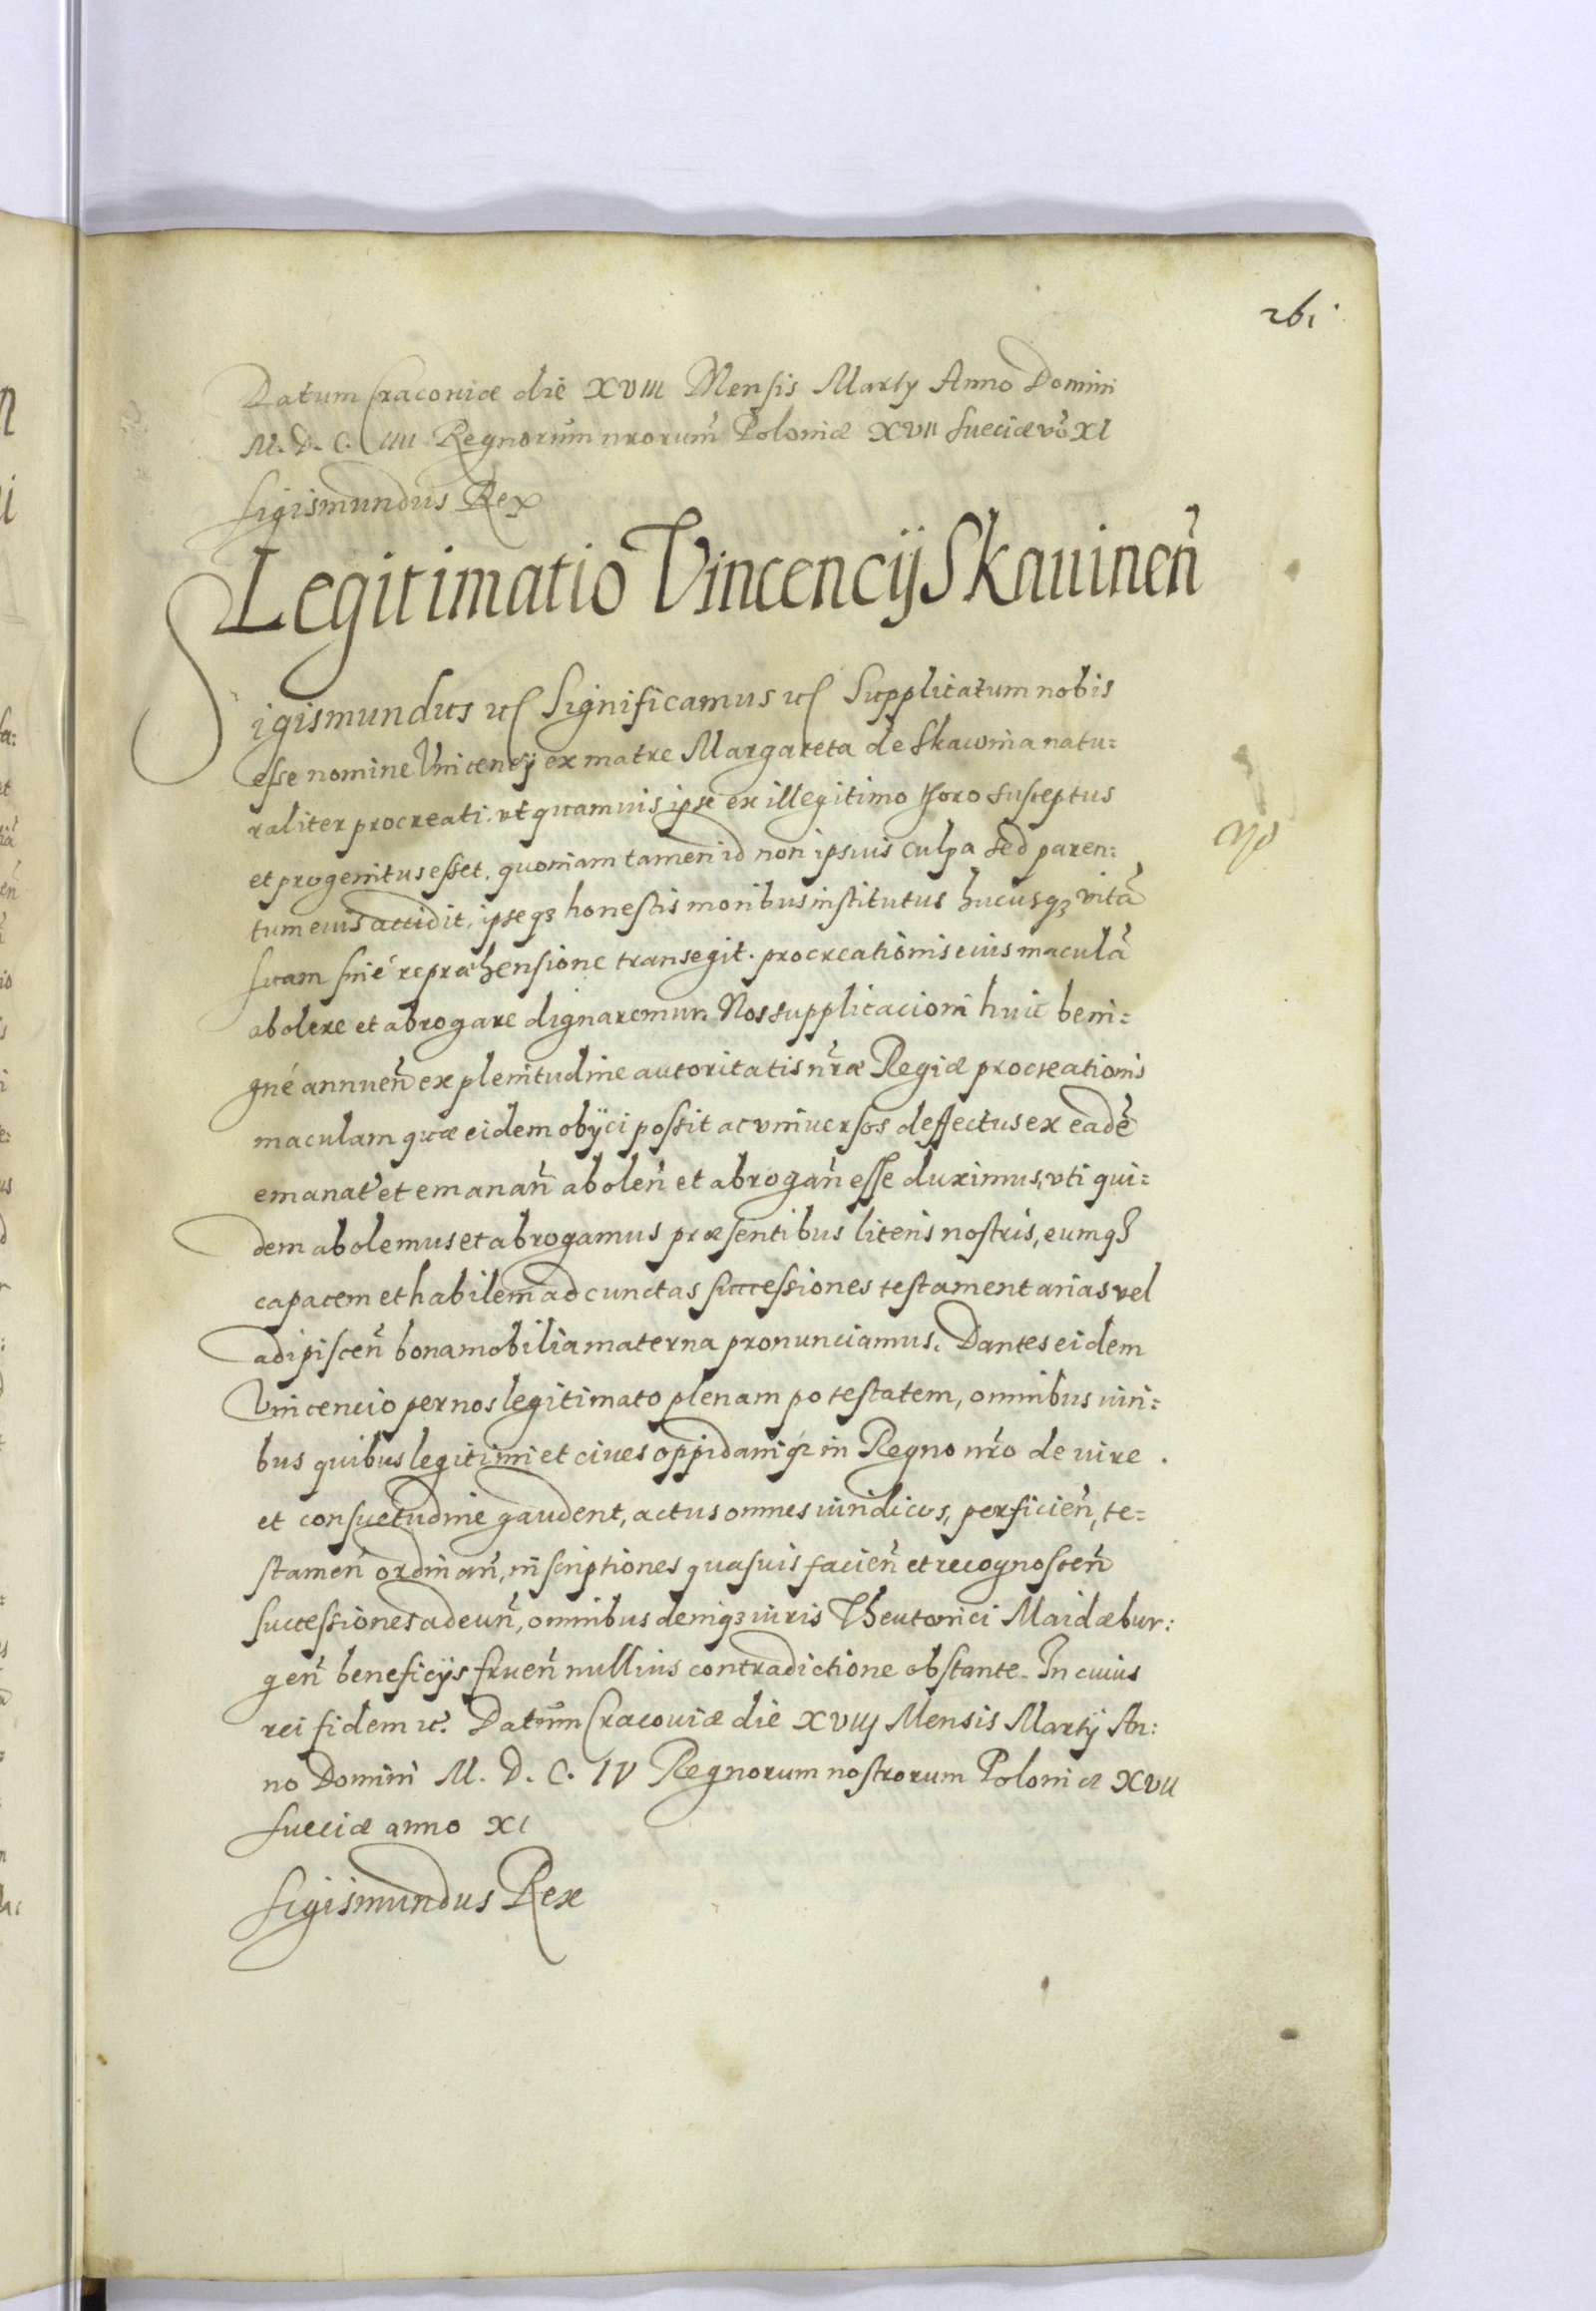 261
Datum Cracoviæ die XVIII Mensis Martÿ Anno Domini
M. D. C. IIII Regnorum nrorum Poloniæ XVII Sueciæ vo XI
Sigismundus Rex
Legitimatio Vincencij Skauineñ
Sigismundus etc Significamus etc Supplicatum nobis
esse nomine Vincencij ex matre Margareta de Skawina natu:
raliter procreati. vt quamuis ipse ex illegitimo thoro susceptus
et progenitus esset, quoniam tamen id non ipsius culpa sed paren:
tum eius accidit, ipseqꝫ honestis moribus institutus hucusqꝫ vitã
suam sine repræhensione transegit. procreationis eius maculã
abolere et abrogare dignaremur. Nos supplicacioni huic beni:
gné annueñ ex plenitudine autoritatis nræ Regiæ procreationis
maculam quæ eidem obijci possit ac vniuersos deffectus ex eadẽ
emanat et emanañ aboleñ et abrogañ esse duximus, vti qui:
dem abolemus et abrogamus præsentibus literis nostris, eumqꝫ
capacem et habilem ad cunctas successiones testamentarias vel
adipisceñ bona mobilia materna pronunciamus. Dantes eidem
Vincencio per nos legitimato plenam potestatem, omnibus iuri:
bus quibus legitimi et ciues oppidaniqꝫ in Regno nro de iure
et consuetudine gaudent, actus omnes iuridicos, perficieñ, te:
stameñ ordinañ, inscriptiones quasuis facieñ et recognosceñ
successiones adeuñ, omnibus deniqꝫ iuris Theutonici Maidæbur:
geñ beneficijs frueñ nullius contradictione obstante. In cuius
rei fidem etc. Datum Cracouiæ die XVIIJ Mensis Martij An:
no Domini M. D. C. IV Regnorum nostrorum Poloniæ XVII
Sueciæ anno XI
Sigismundus Rex